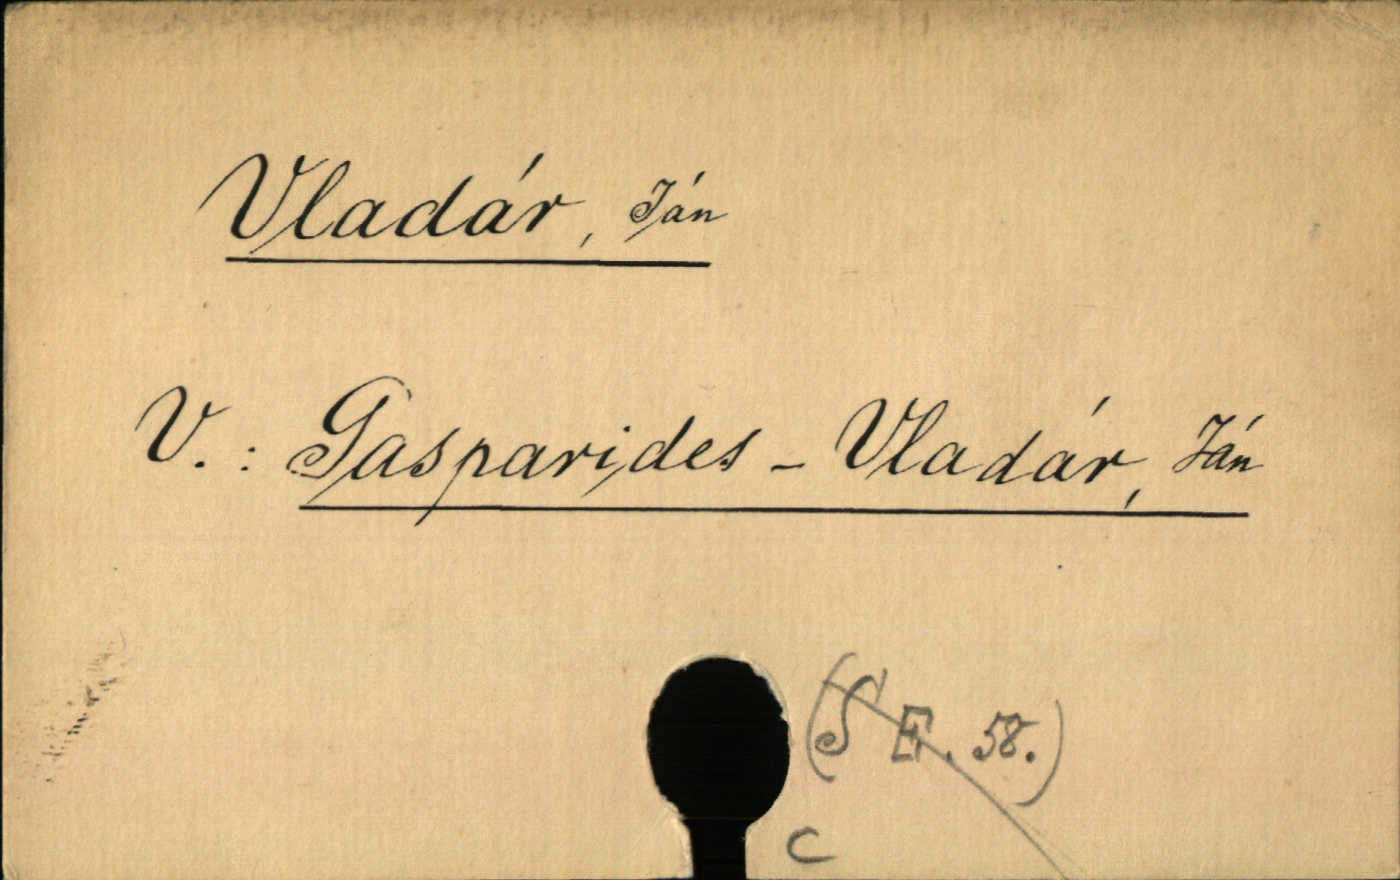 Vladár, Ján
V.: Gasparides - Vladár, Ján
(S E. 58.)
C